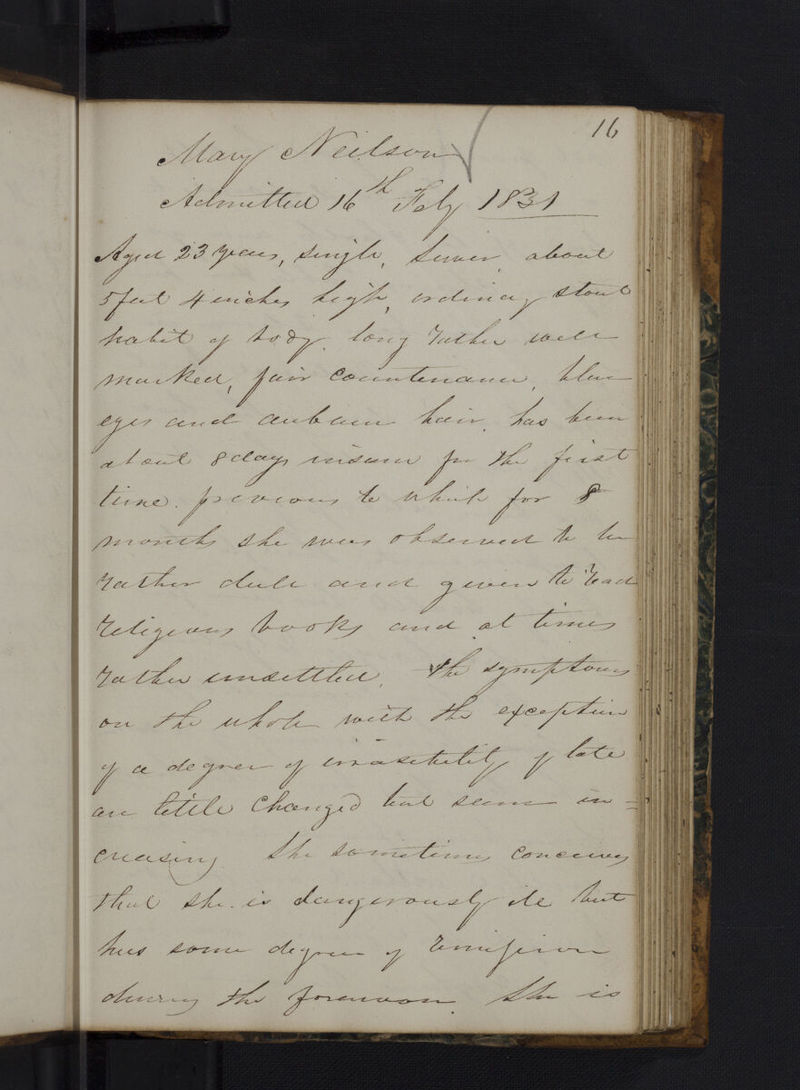 16
Mary Neilson
Admitted 16th Feby 1831
Aged 23 years, single, Sewer, about
5 feet 4 inches high, ordinary stout
habit of body, long rather well
marked, fair countenance, blue
eyes and auburn hair, has been
about 8 days insane for the first
time. previous to which for 8
months she was observed to be
rather dull and given to read
religious books and at times
rather unsettled. The symptoms
on the whole with the exception
of a degree of irrascibility of late
are little changed but seem in=
creasing She sometimes conceives
that she is dangerously ill but
has some degree of remission
during the forenoon. She is